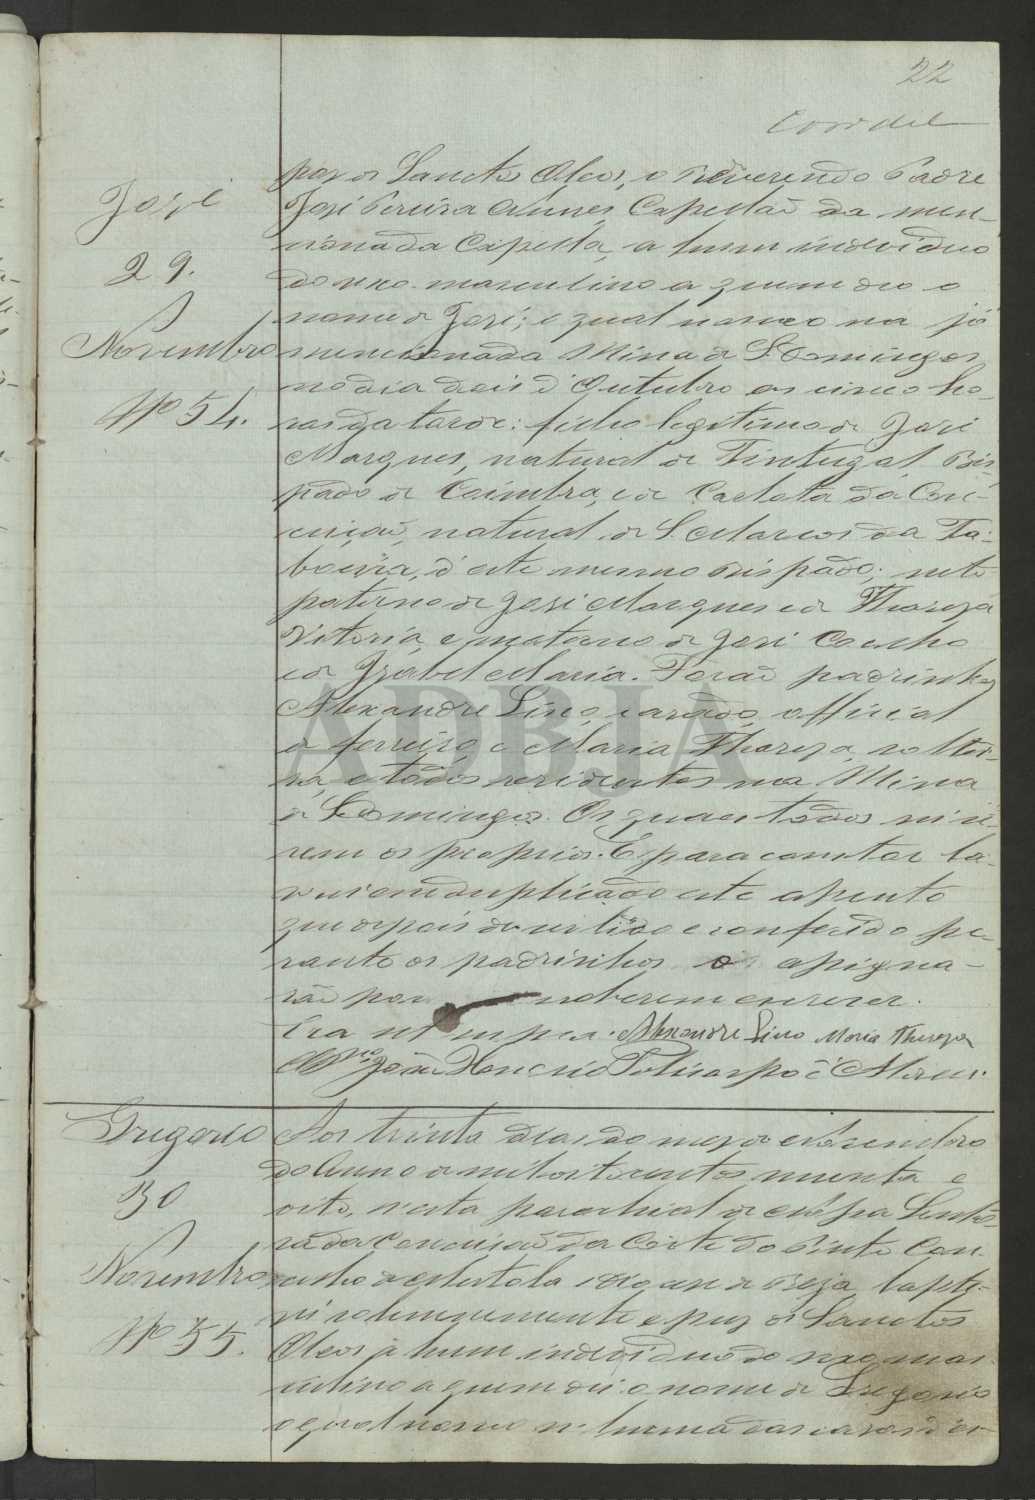 22
José
29.
Novembro
Nº 54.
poz os Sanctos Oleos, o Reverendo Padre
José Pereira Nunes Capellaõ da men-
cionada Capella, a hum individuo
do sexo masculino a quem deo o
nome de José; o qual nasceo na já
mencionada Mina de S. Domingos
no dia dois d'Outubro as cinco ho-
ras da tarde: filho legitimo de José
Marques, natural de Tentugal Bis-
pado de Coimbra, e de Carlota da Con-
ceiçaõ, natural de S. Marcos da Ta-
boeira, d'este mesmo Bispado; neto
paterno de José Marques e de Thereza
Victoria, e materno de José Coelho
e de Izabel Maria. Foraõ padrinhos
Alexandre Lino, cazado, official
de ferreiro, e Maria Thereza, soltei-
ra, e todos rezidentes na Mina
de S. Domingos. Os quaes todos sei se-
rem os proprios. E para constar la-
vrei em duplicado este assento
que depois de ser lido e conferido pe-
rante os padrinhos os assigna-
raõ por naõ saberem escrever.
Era ut supra. Alexandre Lino Maria Thereza
João Policarpo d'Abreu.
Gregorio
30
Novembro
Nº 55.
Aos trinta dias do mez de Novembro
do Anno de mil oito centos secenta e
oito, n'esta parochial de Nossa Senho-
ra da Conceiçaõ da Corte do Pinto Con-
celho de Mertola Diocese de Beja baptí-
zei solemnemente e puz os Sanctos
Oleos a hum individuo do sexo mas-
culino a quem dei o nome de Gregorio
o qual nasceo n'huma das cazas d'es-
ADBJA